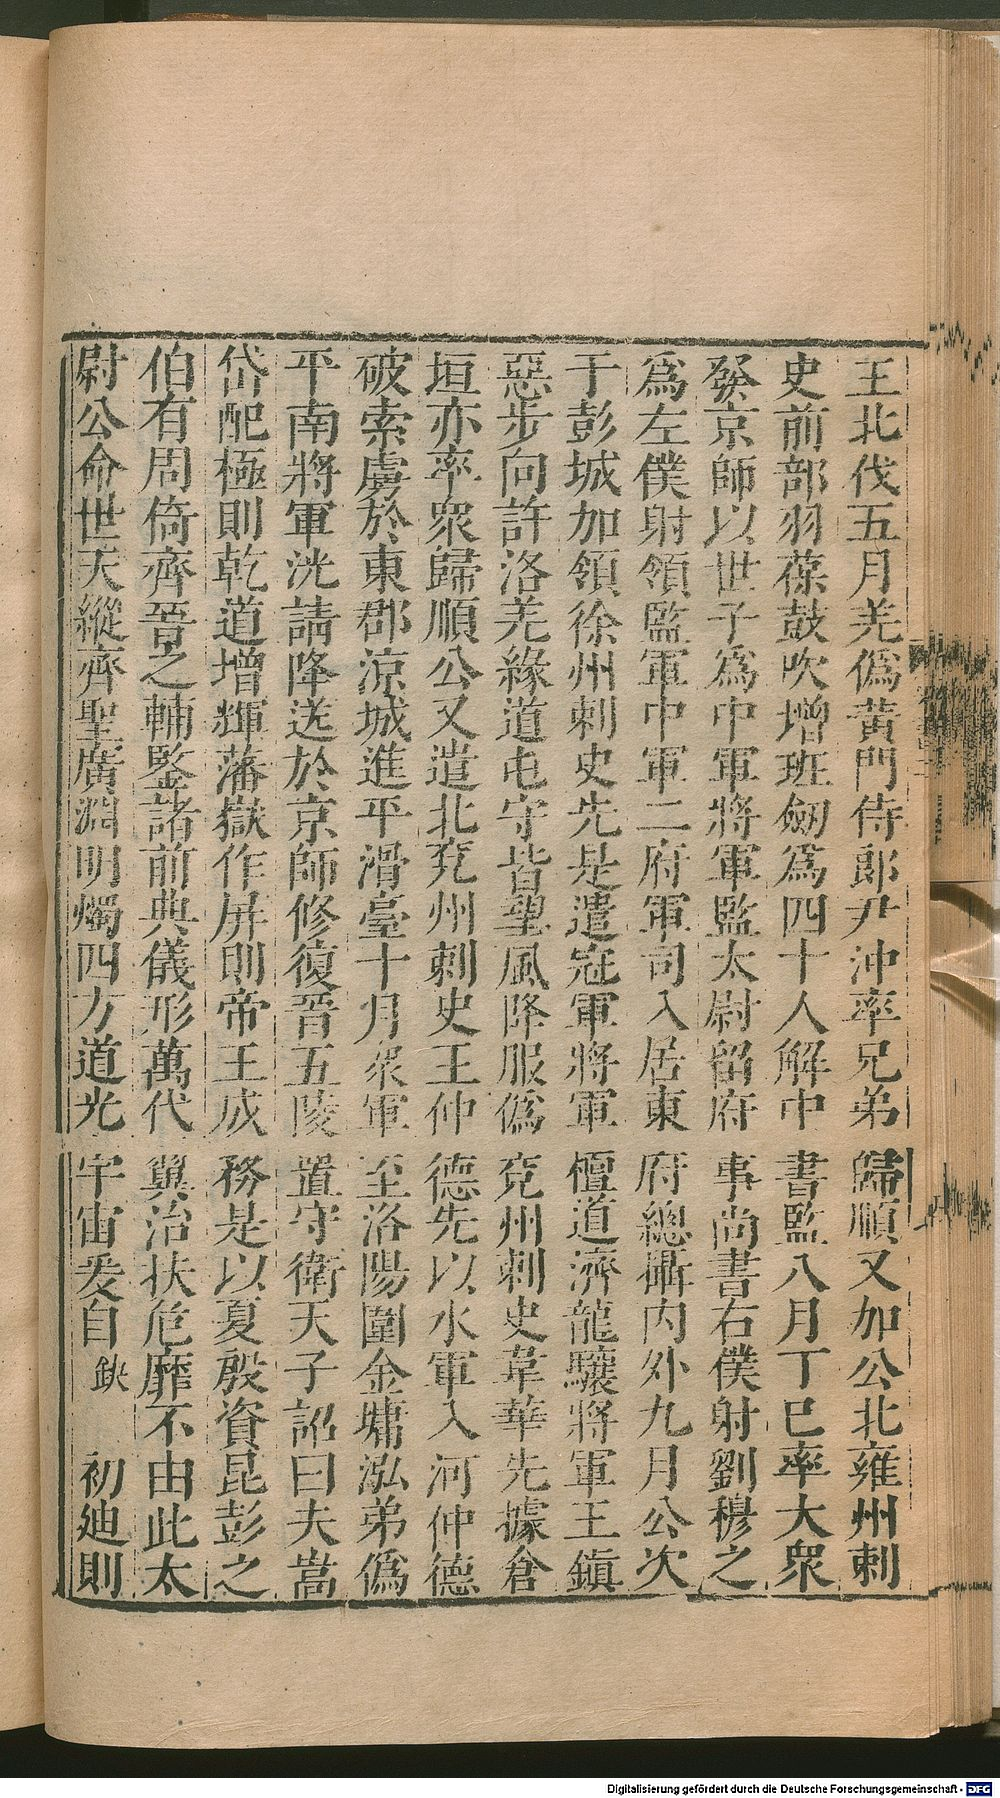 王北伐五月羌偽黃門侍郎尹沖率兄弟歸順又加公北雍州刺
史前部羽葆鼓吹增班劒爲四十人解中書監八月丁巳率大衆
發京師以世子爲中軍將軍監太尉留府事尚書右僕射劉穆之
爲左僕射領監軍中軍二府軍司入居東府總攝内外九月公次
于彭城加領徐州刺史先是遣冠軍將軍檀道濟龍驤將軍王鎮
惡步向許洛羌緣道屯守皆望風降服偽兗州刺史韋華先據倉
垣亦率衆歸順公又遣北兗州刺史王仲德先以水軍入河仲德
破索虜於東郡涼城進平滑臺十月衆軍至洛陽圍金墉泓弟偽
平南將軍洸請降送於京師修復晉五陵置守衛天子詔曰夫嵩
岱配極則乾道增輝藩嶽作屏則帝王成務是以夏殷資昆彭之
伯有周倚齊晉之輔鑒諸前典儀形萬代翼治扶危靡不由此太
尉公命世天縱齊聖廣淵明燭四方道光宇宙爰自 鈌 初迪則
Digitalisierung gefördert durch die Deutsche Forschungsgemeinschaft - DFG